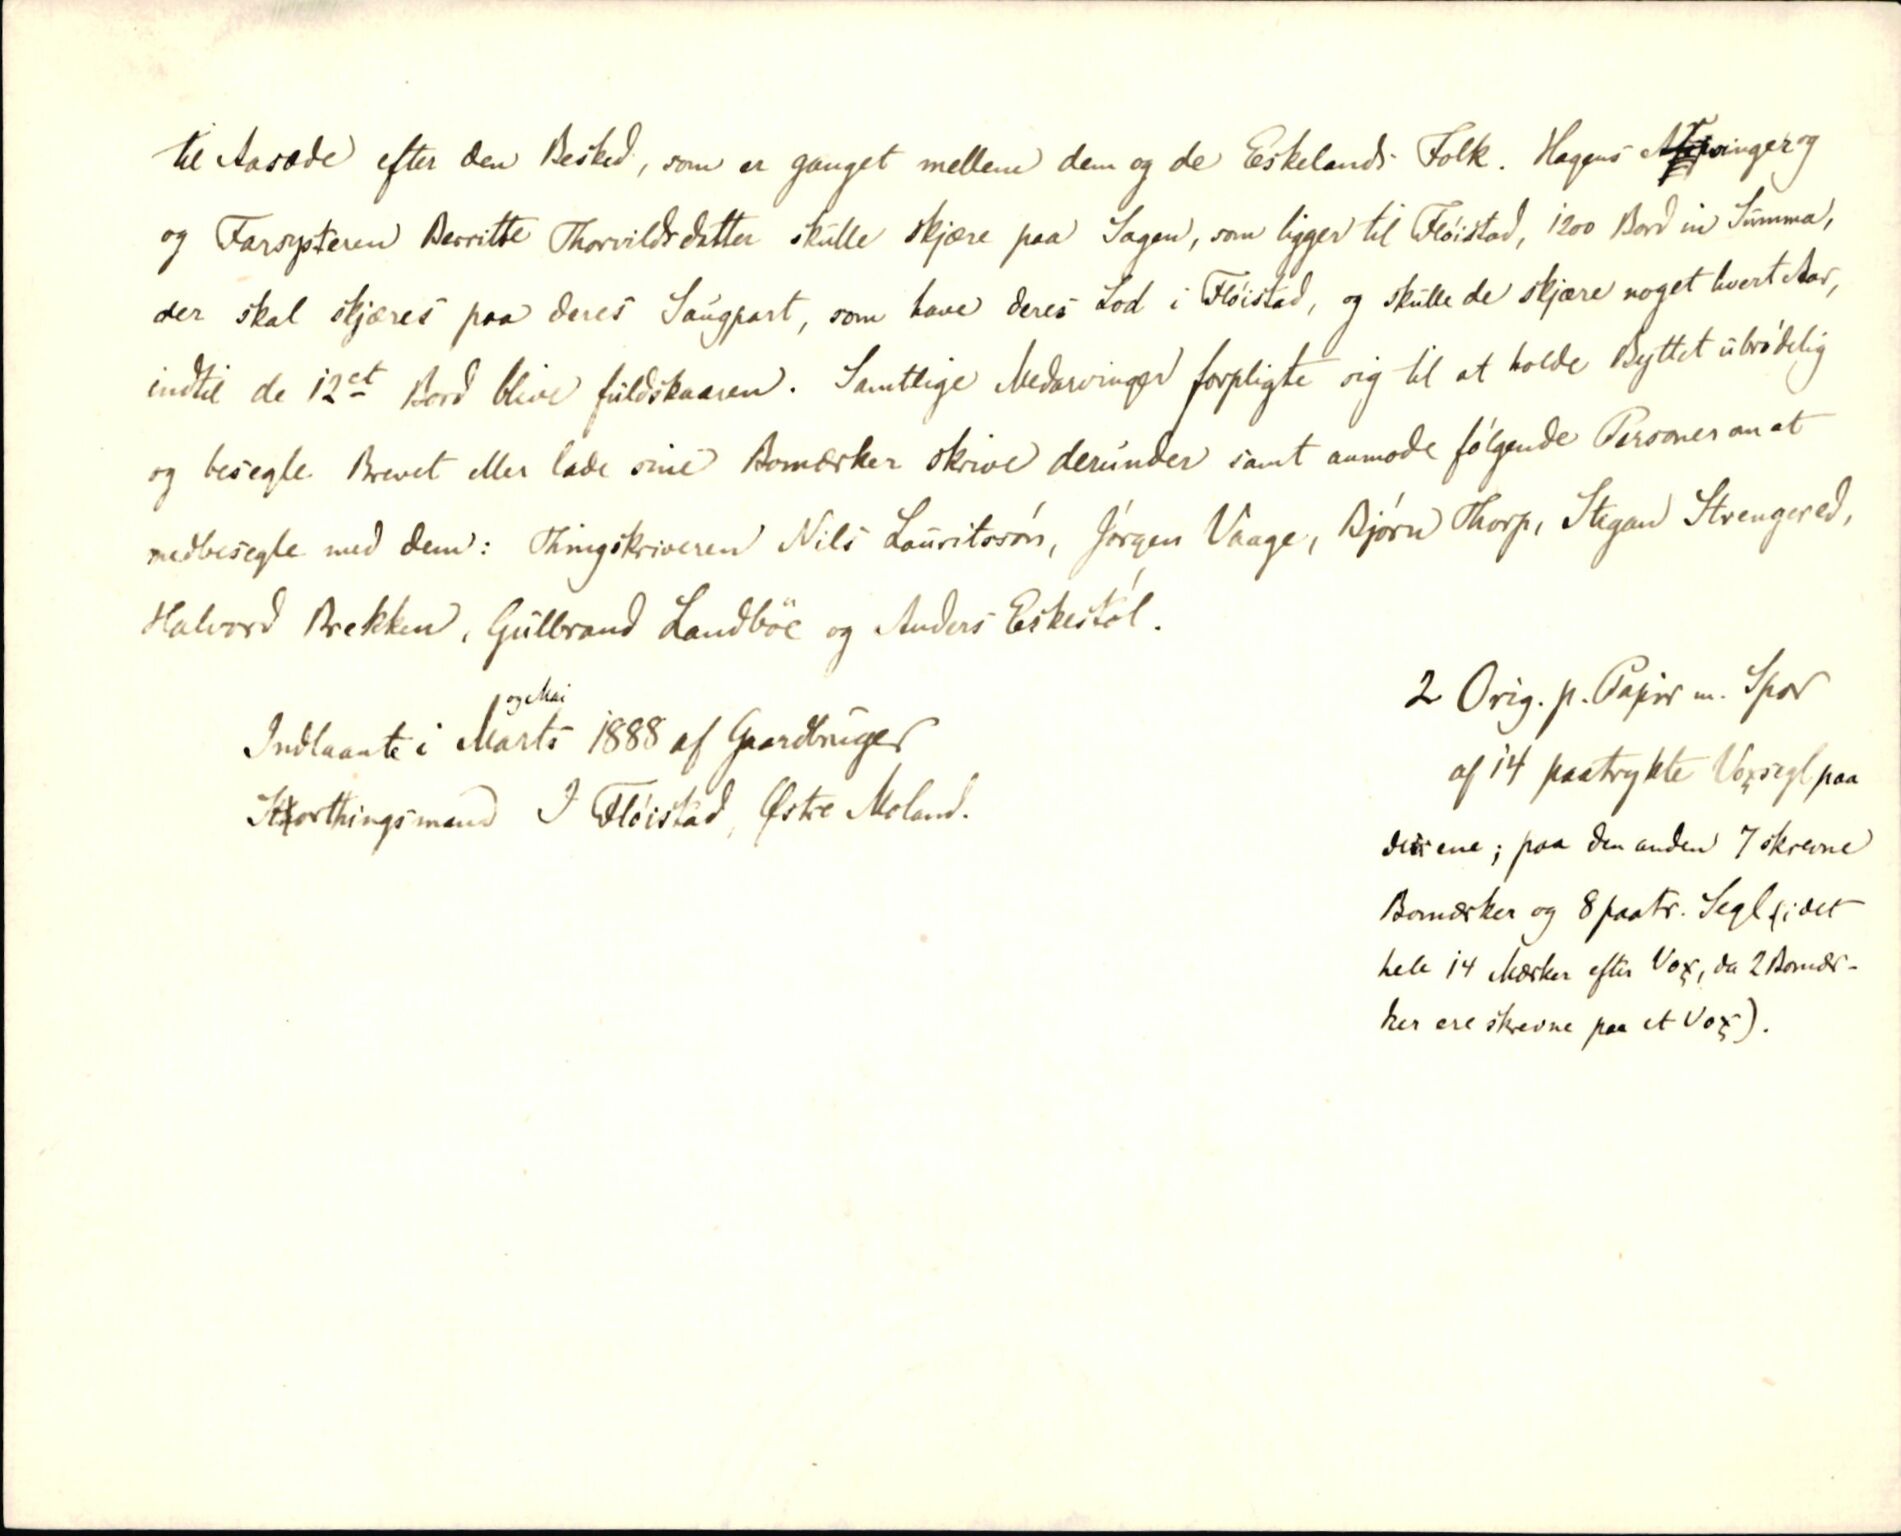 til Aasæde efter den Besked, som er ganget mellem dem og de Eskelands Folk. Hagens Arvinger og
og Farsysteren Berritte Thorvildsdatter skulle skjære paa Sagen, som ligger til Fløistad, 1200 Bord in Summa,
der skal skjæres paa deres Saugpart, som have deres Lod i Fløistad, og skulle de skjære noget hvert Aar,
indtil de 12ct Bord blive fuldskaaren. Samtlige Medarvinger forpligte sig til at holde Byttet ubrødelig
og besegle Brevet eller lade sine Bomærker skrive derunder samt anmode følgende Personer om at
medbesegle med dem: Thingskriveren Nils Lauritssøn, Jørgen Vaage, Bjørn Thorp, Stegan Strengered,
Halvord Brekken, Gulbrand Landbøe og Anders Eskestøl.
og Mai
Indlaante i Marts 1888 af Gaardbruger
Storthingsmand I Fløistad, Østre Moland.
2 Orig. p. Papir m. Spor
af 14 paatrykte Voxsegl paa
det ene; paa den anden 7 skrevne
Bomærker og 8 paatr. Segl (i det
hele 14 Mærker efter Vox, da 2 Bomær-
ker ere skrevne paa et Vox).